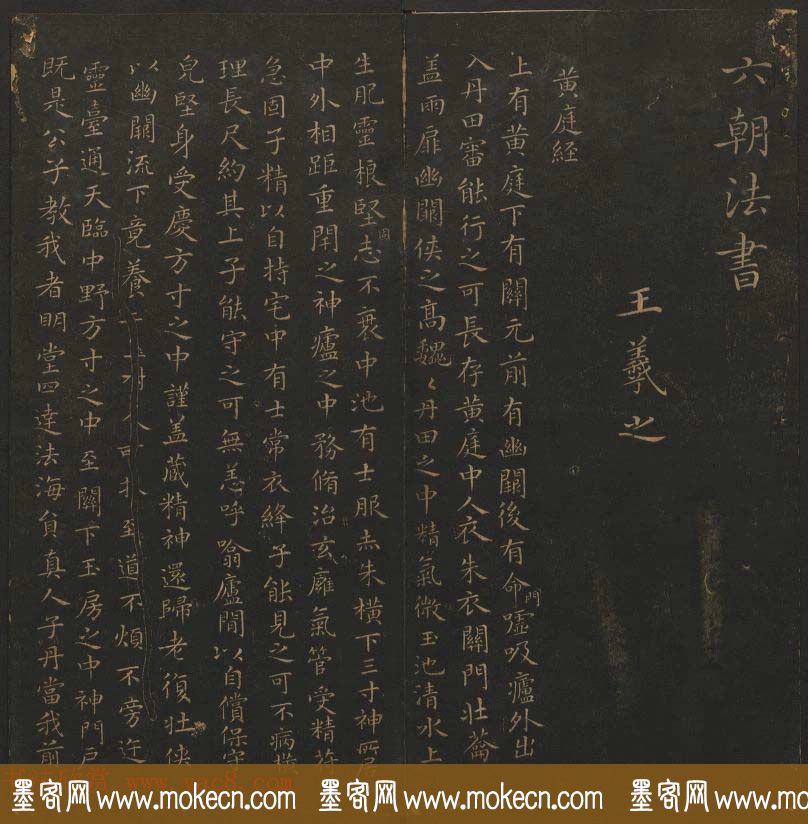 六朝法書
王羲之
黄庭経
上有黄庭下有關元前有幽闕後有命門嘘吸廬外出
入丹田審能行之可長存黄庭中人衣朱衣關門壮蘥
盖兩扉幽闕侠之髙魏〻丹田之中精氣微玉池清水上
生肥靈根堅固志不衰中池有士服赤朱横下三寸神所居
中外相距重閇之神廬之中務脩治玄廱氣管受精符
急固子精以自持宅中有士常衣絳子能見之可不病横
理長尺約其上子能守之可無恙呼噏廬間以自償保守
皃堅身受慶方寸之中謹盖藏精神還歸老復壮侠
以幽闕流下竟養至道不煩不旁迕
靈臺通天臨中野方寸之中至關下玉房之中神門户
既是公子教我者明堂四達法海負真人子丹當我前
墨客网 www.mokecn.com 墨客网 www.mokecn.com 墨客网 www.mokecn.com